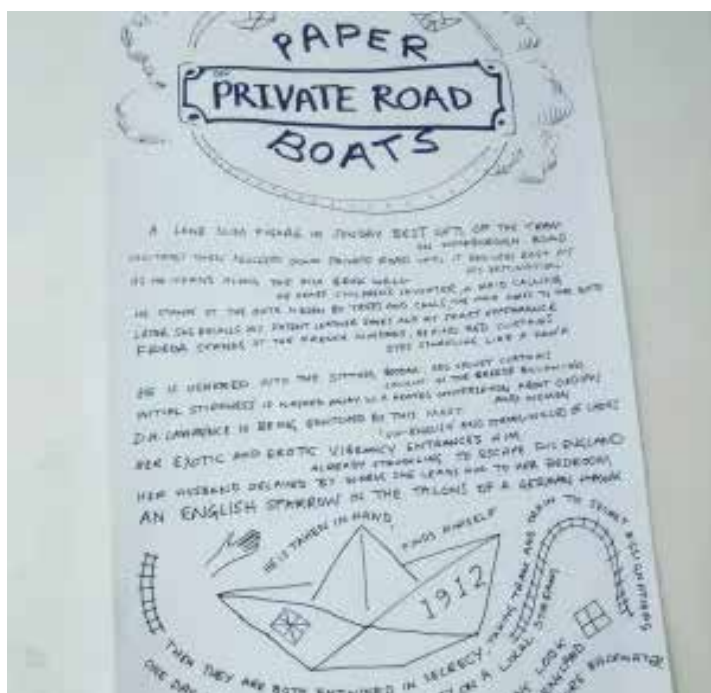 PAPER
PRIVATE ROAD
BOATS
A LONE SLIM FIGURE IN SUNDAY BEST GETS OFF THE TRAM
ON WOODBOROUGH ROAD
THEN DOWN PRIVATE ROAD UNTIL IT
AS HE TURNS ALONG THE HIGH BRICK WALL
HE HEARS CHILDREN'S LAUGHTER, A MAID CALLING
HE STANDS AT THE GATE HIDDEN BY TREES AND CALLS, THE MAID GOES TO THE GATE
LATER SHE RECALLS HIS PATENT LEATHER SHOES AND HIS SMART APPEARANCE
FRIEDA STANDS AT THE FRENCH WINDOWS, BEHIND RED CURTAINS
EYES SPARKLING LIKE A
HE IS USHERED INTO THE SITTING ROOM, RED VELVET CURTAINS
CAUGHT IN THE BREEZE BILLOWING
INITIAL STIFFNESS IS WASHED AWAY IN A HEATED CONVERSATION ABOUT OEDIPUS
AND WOMEN
D.H. LAWRENCE IS BEING BEWITCHED BY THIS MOST
UN-ENGLISH AND OF LADIES
HER EXOTIC AND EROTIC VIBRANCY ENTRANCES HIM
ALREADY STRUGGLING TO ESCAPE THIS ENGLAND
HER HUSBAND DELAYED BY WORK SHE LEADS HIM TO HER BEDROOM
AN ENGLISH SPARROW IN THE TALONS OF A GERMAN HAWK
HE IS TAKEN IN HAND
FINDS HIMSELF
1912
THEN THEY ARE BOTH ENTWINED IN SECRECY, TAKING TRAM AND TRAIN TO SECRET ASSIGNATIONS
ONE DAY ON A LOCAL STREAM
LOOK